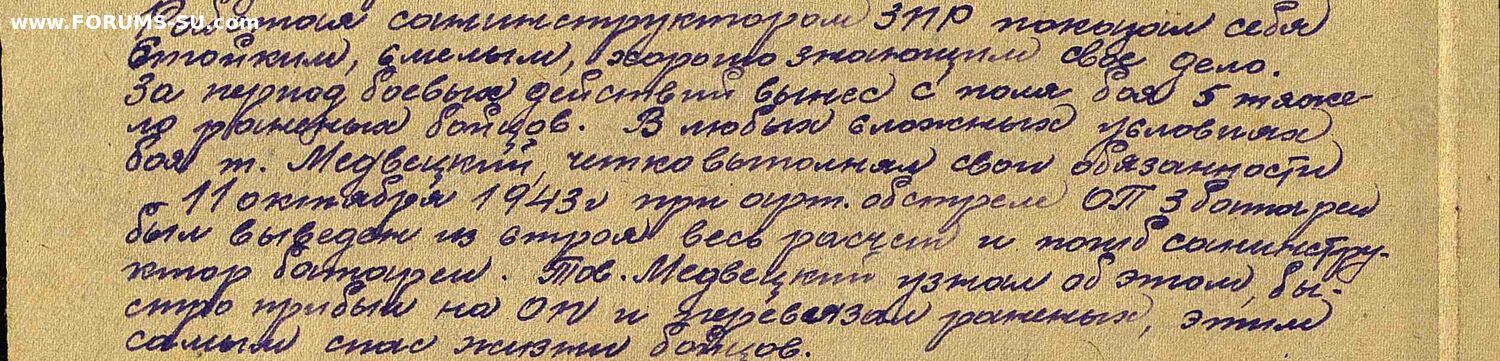 www.FORUMS-SU.com
Работая санинструктором ЗПР показал себя
стойким, смелым, хорошо знающим свое дело.
За период боевых действий вынес с поля боя 5 тяже-
ло раненых бойцов. В любых сложных условиях
боя т. Медвецкий, четко выполнял свои обязанности
11 октября 1943г при арт. обстреле ОП 3 батареи
был выведен из строя весь расчет и погиб санинстру-
ктор батареи. Тов. Медвецкий узнал об этом, бы-
стро прибыл на ОП и перевязал раненых, этим
самым спас жизни бойцов.